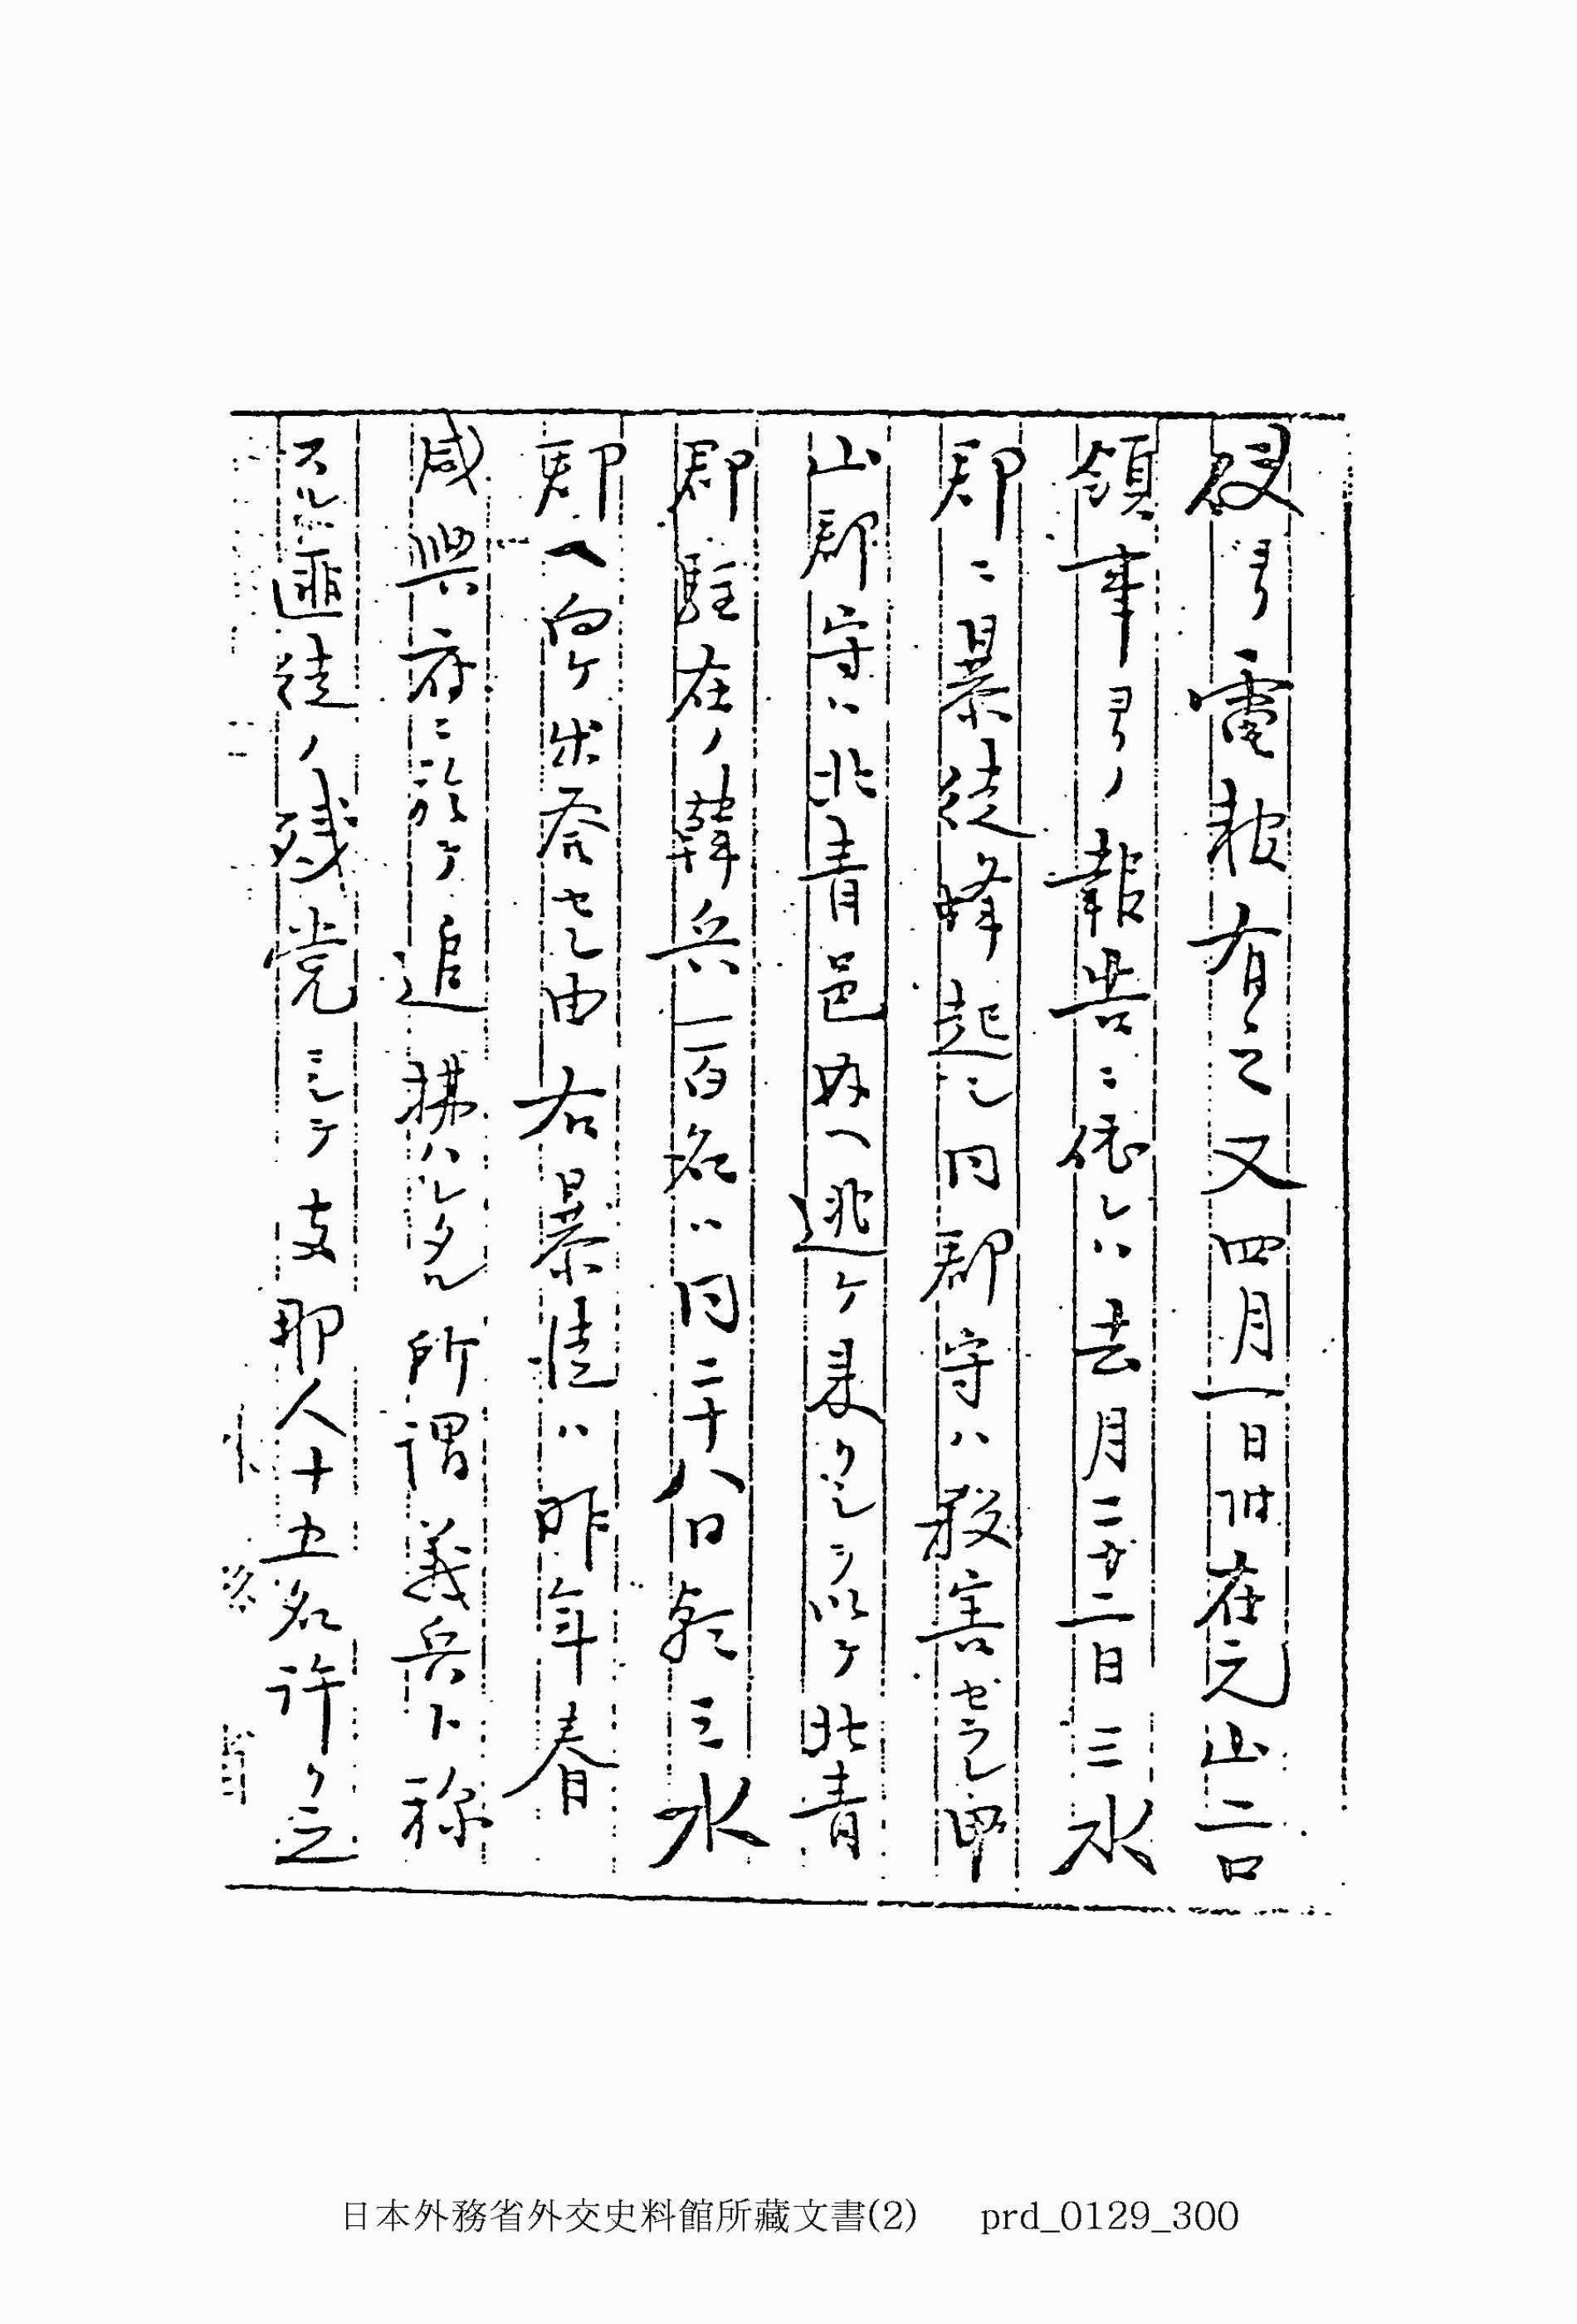 役ヨリ電報有之又四月一日付在元山二口
領事ヨリノ報告ニ依レハ去月二十二日三水
郡ニ暴徒蜂起シ同郡守ハ殺害セラレ甲
山郡守ハ北青邑内ヘ逃ケ来リタルヲ以テ北青
郡駐在ノ韓兵一百名ハ同二十八日発シ三水
郡ヘ向ケ出発セシ由右暴徒ハ昨年春
咸興府ニ於テ追拂ハレタル所謂義兵ト称
スル匪徒ノ残党ニシテ支那人十五名許リ之
日本外務省外交史料館所藏文書(2) prd_0129_300